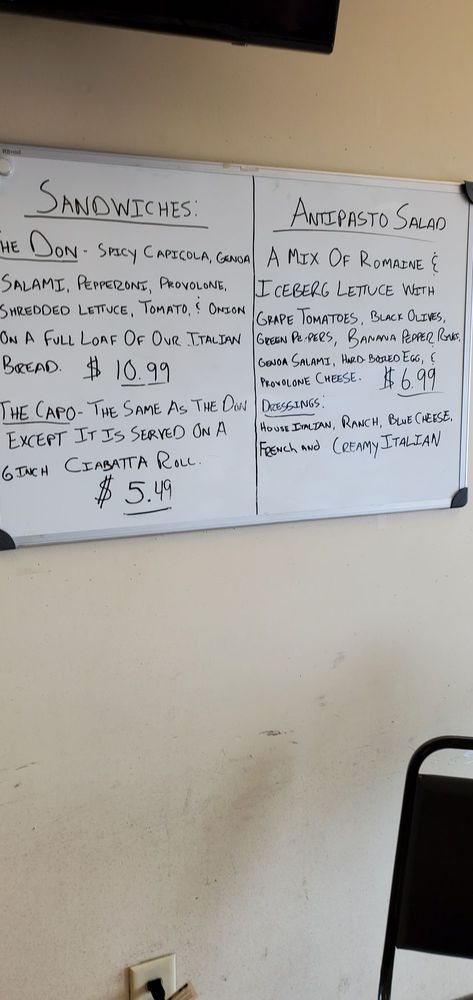 SANDWICHES:
THE DON - SPICY CAPICOLA, GENOA
SALAMI, PEPPERONI, PROVOLONE,
SHREDDED LETTUCE, TOMATO, & ONION
ON A FULL LOAF OF OUR ITALIAN
BREAD. $ 10.99
THE CAPO - THE SAME AS THE DON
EXCEPT IT IS SERVED ON A
6 INCH CIABATTA ROLL.
$ 5.49
ANTIPASTO SALAD
A MIX OF ROMAINE &
ICEBERG LETTUCE WITH
GRAPE TOMATOES, BLACK OLIVES,
GREEN PEPPERS, BANANA PEPPER RINGS,
GENOA SALAMI, HARD BOILED EGG, &
PROVOLONE CHEESE. $ 6.99
DRESSINGS:
HOUSE ITALIAN, RANCH, BLUE CHEESE,
FRENCH AND CREAMY ITALIAN